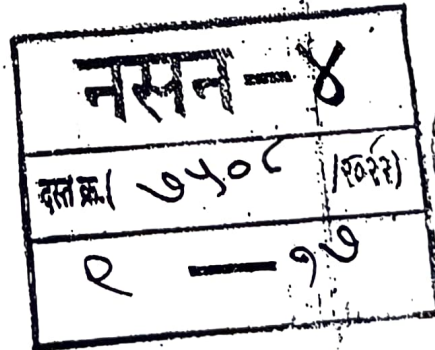 नसन - ४
दस्त क्र.( ७५०८ /२०२२)
१ — १७